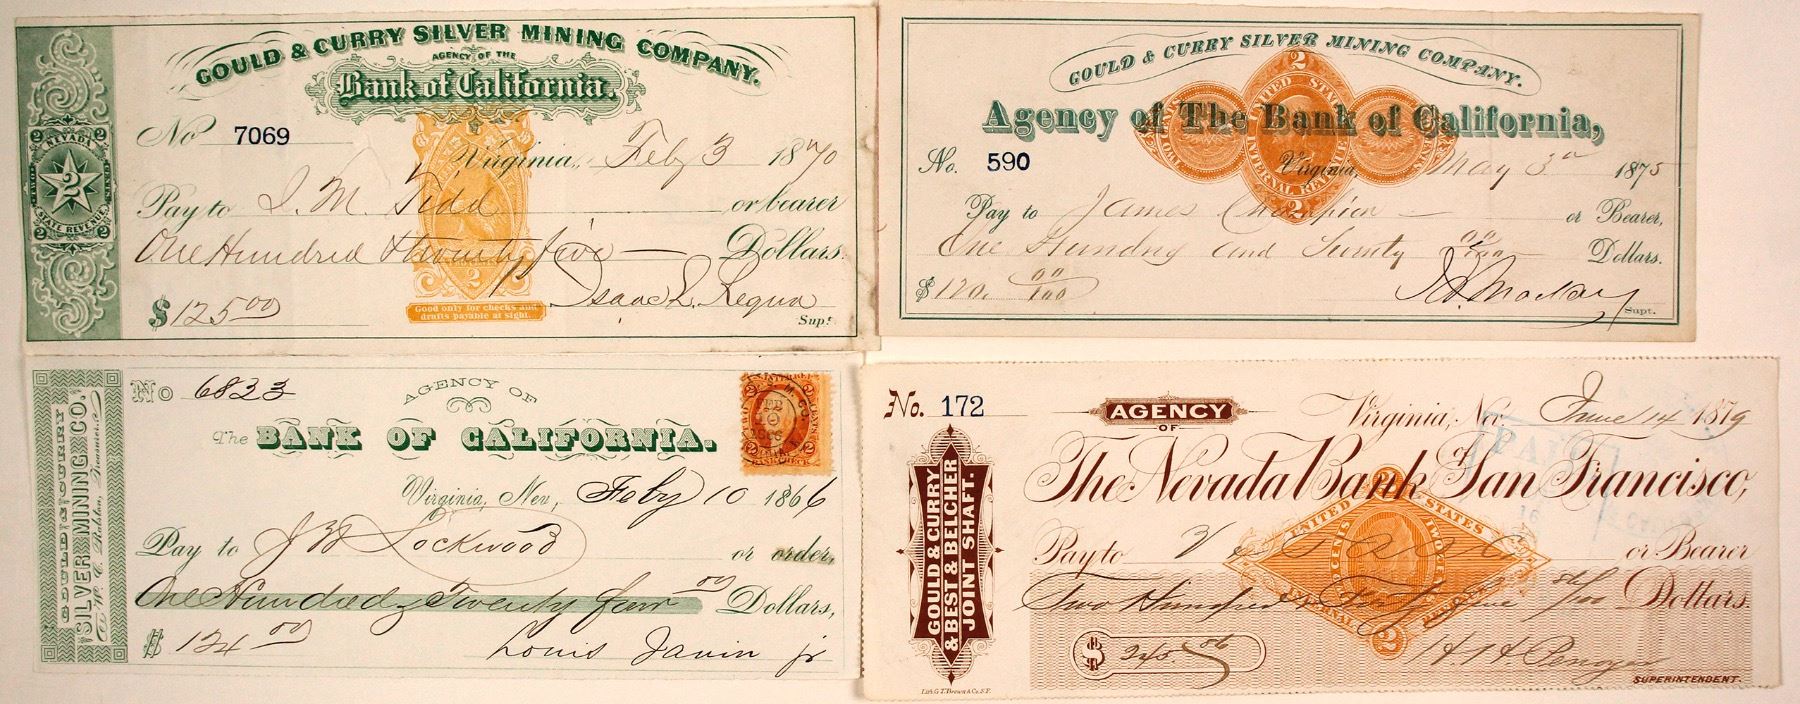 GOULD & CURRY SILVER MINING COMPANY.
AGENCY OF THE
Bank of California.
No 7069
Virginia, Feby 3 1870
Pay to I. M. Tidd or bearer
One Hundred & twenty five Dollars.
$125.00 Isaac L. Requa
Supt.
NEVADA
2 2
TWO 2 CENTS
STATE REVENUE
2 2
2
Good only for checks and
drafts payable at sight.
GOULD & CURRY SILVER MINING COMPANY.
Agency of The Bank of California,
No. 590 Virginia, May 3d 1875
Pay to James Champion or Bearer,
One Hundred and Twenty 00/100 Dollars.
$120. 00/100
Supt.
2
UNITED STATES
INTERNAL REVENUE
2
GOULD & CURRY
SILVER MINING CO.
No 6823
AGENCY OF
The BANK OF CALIFORNIA.
Virginia, Nev, Feby 10 1866
Pay to J W Lockwood or order,
One Hundred & Twenty four 00 Dollars,
$ 124 00
Louis Janin jr
No. 172 AGENCY
OF
Virginia, Nev. June 14 1879
The Nevada Bank of San Francisco,
Pay to or Bearer
Two Hundred & Forty five 86/100 Dollars.
$ 245.86
SUPERINTENDENT.
GOULD & CURRY
& BEST & BELCHER
JOINT SHAFT.
Lith. G.T. Brown & Co. S.F.
UNITED STATES
TWO CENTS
INTERNAL REVENUE
2
PAID
16